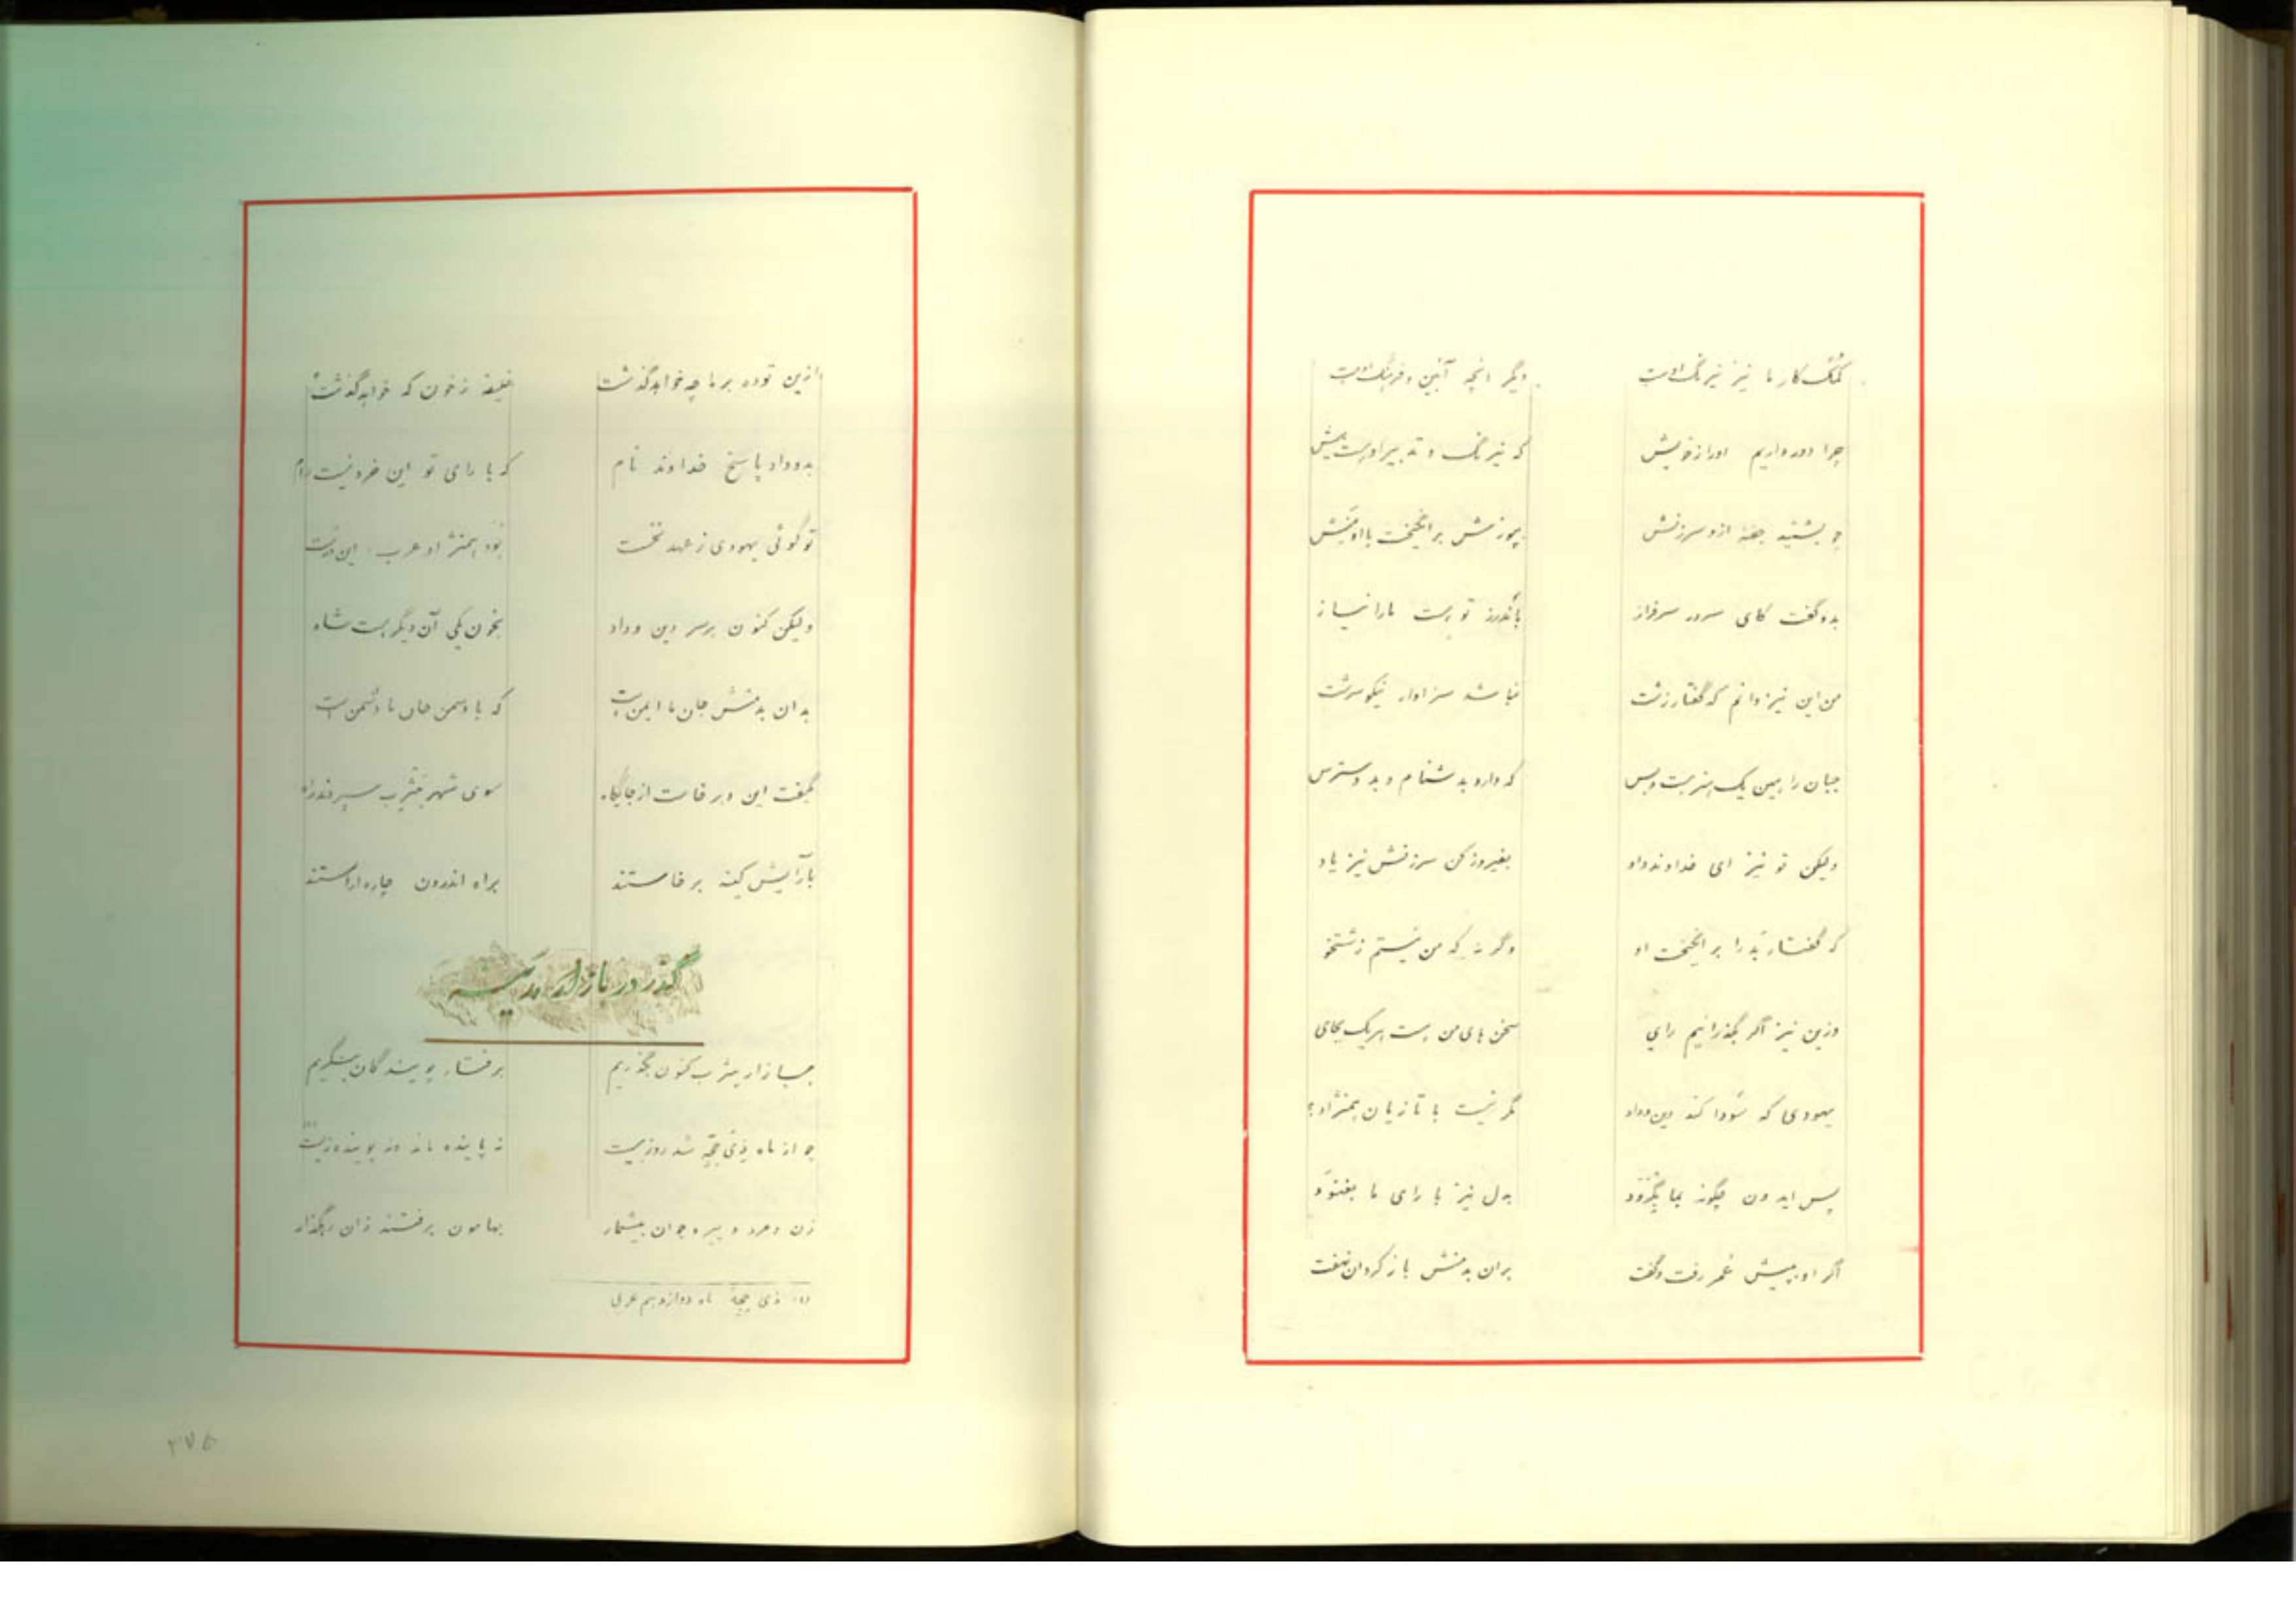 کمک کار ما نیز نیرنگ اوست دگر انچه آئین و فرهنگ اوست
چرا دور داریم اورا ز خویش که نیرنگ و تدبیر او هست بیش
چو بشنید جفنه ازو سرزنش بپوزش برانگیخت با او منش
بدو گفت کای سرور سرفراز باندرز تو هست ما را نیاز
من این نیز دانم که گفتار زشت نباشد سزاوار نیکو سرشت
جبان را همین یک هنر هست و بس که دارد بدشنام و بد دسترس
ولیکن تو نیز ای خداوند داد بفیروز کن سرزنش نیز یاد
که گفتار بد را برانگیخت او وگرنه که من نیستم زشتخو
وزین نیز اگر بگذرانیم رای سخن های من هست هریک بجای
یهودی که سودا کند دین و داد مگر نیست با تازیان همنژاد؟
پس ایدون چگونه بما بگرود بدل نیز با رای ما بغنود
اگر او به پیش عمر رفت و گفت بران بدمنش باز کرد آن نهفت
ازین توده بر ما چه خواهد گذشت خلیفه ز خون که خواهد گذشت؟
بدو داد پاسخ خداوند نام که با رای تو این خرد نیست رام
تو گوئی یهودی ز عهد نخست بود همنژاد عرب، این درست
ولیکن کنون بر سر دین و داد بخون یکی آن دگر هست شاد
بدان بدمنش جان ما ایمن است که با دشمن جان ما دشمن است
بگفت این و برخاست از جایگاه سوی شهر یثرب سپردند راه
بآرایش کینه برخاستند براه اندرون چاره آراستند
گذر در بازار مدینه
ببازار یثرب کنون بگذریم برفتار پویندگان بنگریم
چو از ماه ذی حجّه شد روز بیست نه پاینده ماند و نه پوینده زیست
زن و مرد و پیر و جوان بیشمار بهامون برفتند زان رهگذار
ذی حجّه ماه دوازدهم عربی
۲۷۵